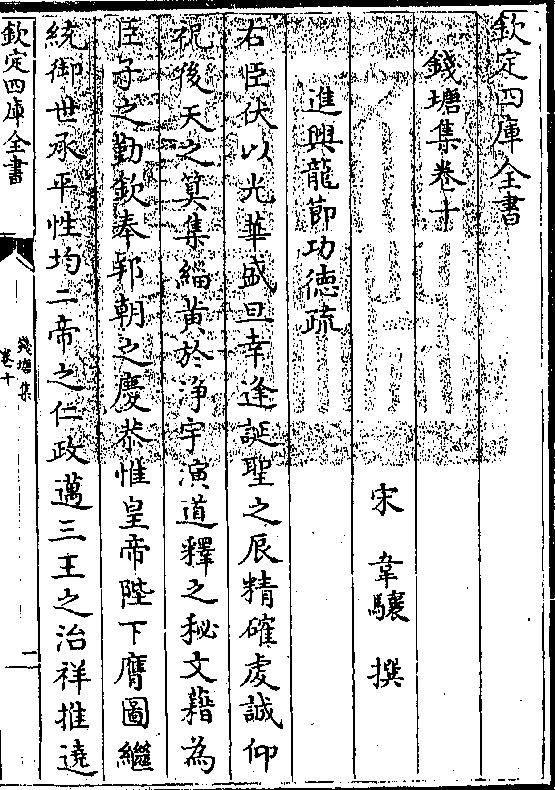 欽定四庫全書
錢塘集卷十
宋韋驤撰
進興龍節功德疏
右臣伏以光華盛旦幸逢誕聖之辰精確虔誠仰
祝後天之筭集緇黄於浄宇演道釋之秘文藉為
臣子之勤欽奉郭朝之慶恭惟皇帝陛下膺圖繼
統御世承平性均二帝之仁政邁三王之治祥推遶
欽定四庫全書
錢塘集
卷十
一